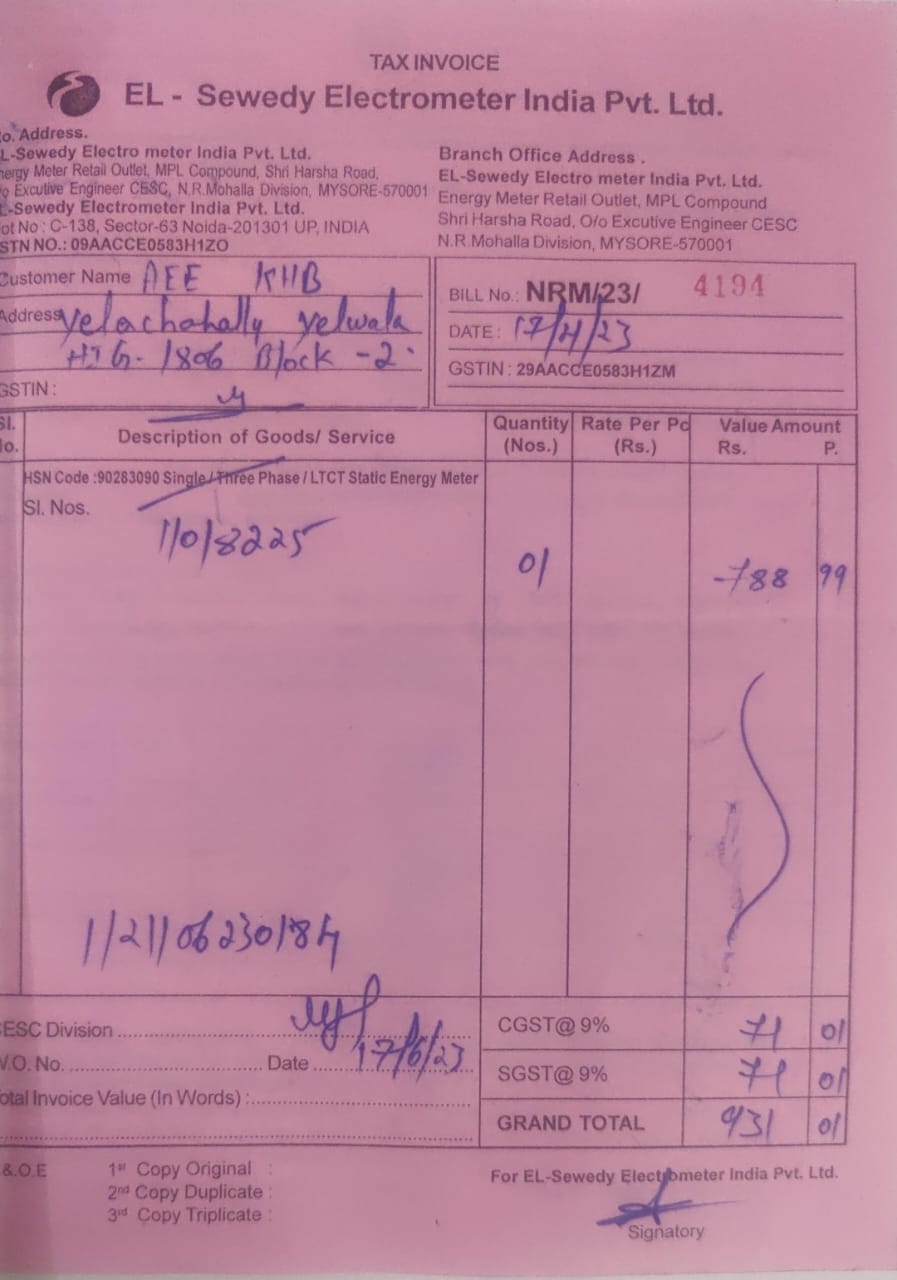 TAX INVOICE
EL - Sewedy Electrometer India Pvt. Ltd.
o. Address.
L-Sewedy Electro meter India Pvt. Ltd.
nergy Meter Retail Outlet, MPL Compound, Shri Harsha Road,
o Excutive Engineer CESC, N.R.Mohalla Division, MYSORE-570001
L-Sewedy Electrometer India Pvt. Ltd.
ot No : C-138, Sector-63 Noida-201301 UP, INDIA
STN NO.: 09AACCE0583H1ZO
Branch Office Address .
EL-Sewedy Electro meter India Pvt. Ltd.
Energy Meter Retail Outlet, MPL Compound
Shri Harsha Road, O/o Excutive Engineer CESC
N.R.Mohalla Division, MYSORE-570001
Customer Name AEE KHB
Address Yelachahally Yelwala
HIG- 1806 Block -2
GSTIN :
BILL No.: NRM/23/ 4194
DATE : 17/4/23
GSTIN : 29AACCE0583H1ZM
Sl. No. Description of Goods/ Service Quantity (Nos.) Rate Per Pc (Rs.) Value Amount Rs. P.
HSN Code :90283090 Single / Three Phase / LTCT Static Energy Meter
Sl. Nos.
11018225 01 -788 99
1121106230184
ESC Division
W.O. No. Date 17/6/23
otal Invoice Value (In Words) :
CGST@ 9% 71 01
SGST@ 9% 71 01
GRAND TOTAL 931 01
&.O.E
1st Copy Original :
2nd Copy Duplicate :
3rd Copy Triplicate :
For EL-Sewedy Electrometer India Pvt. Ltd.
Signatory